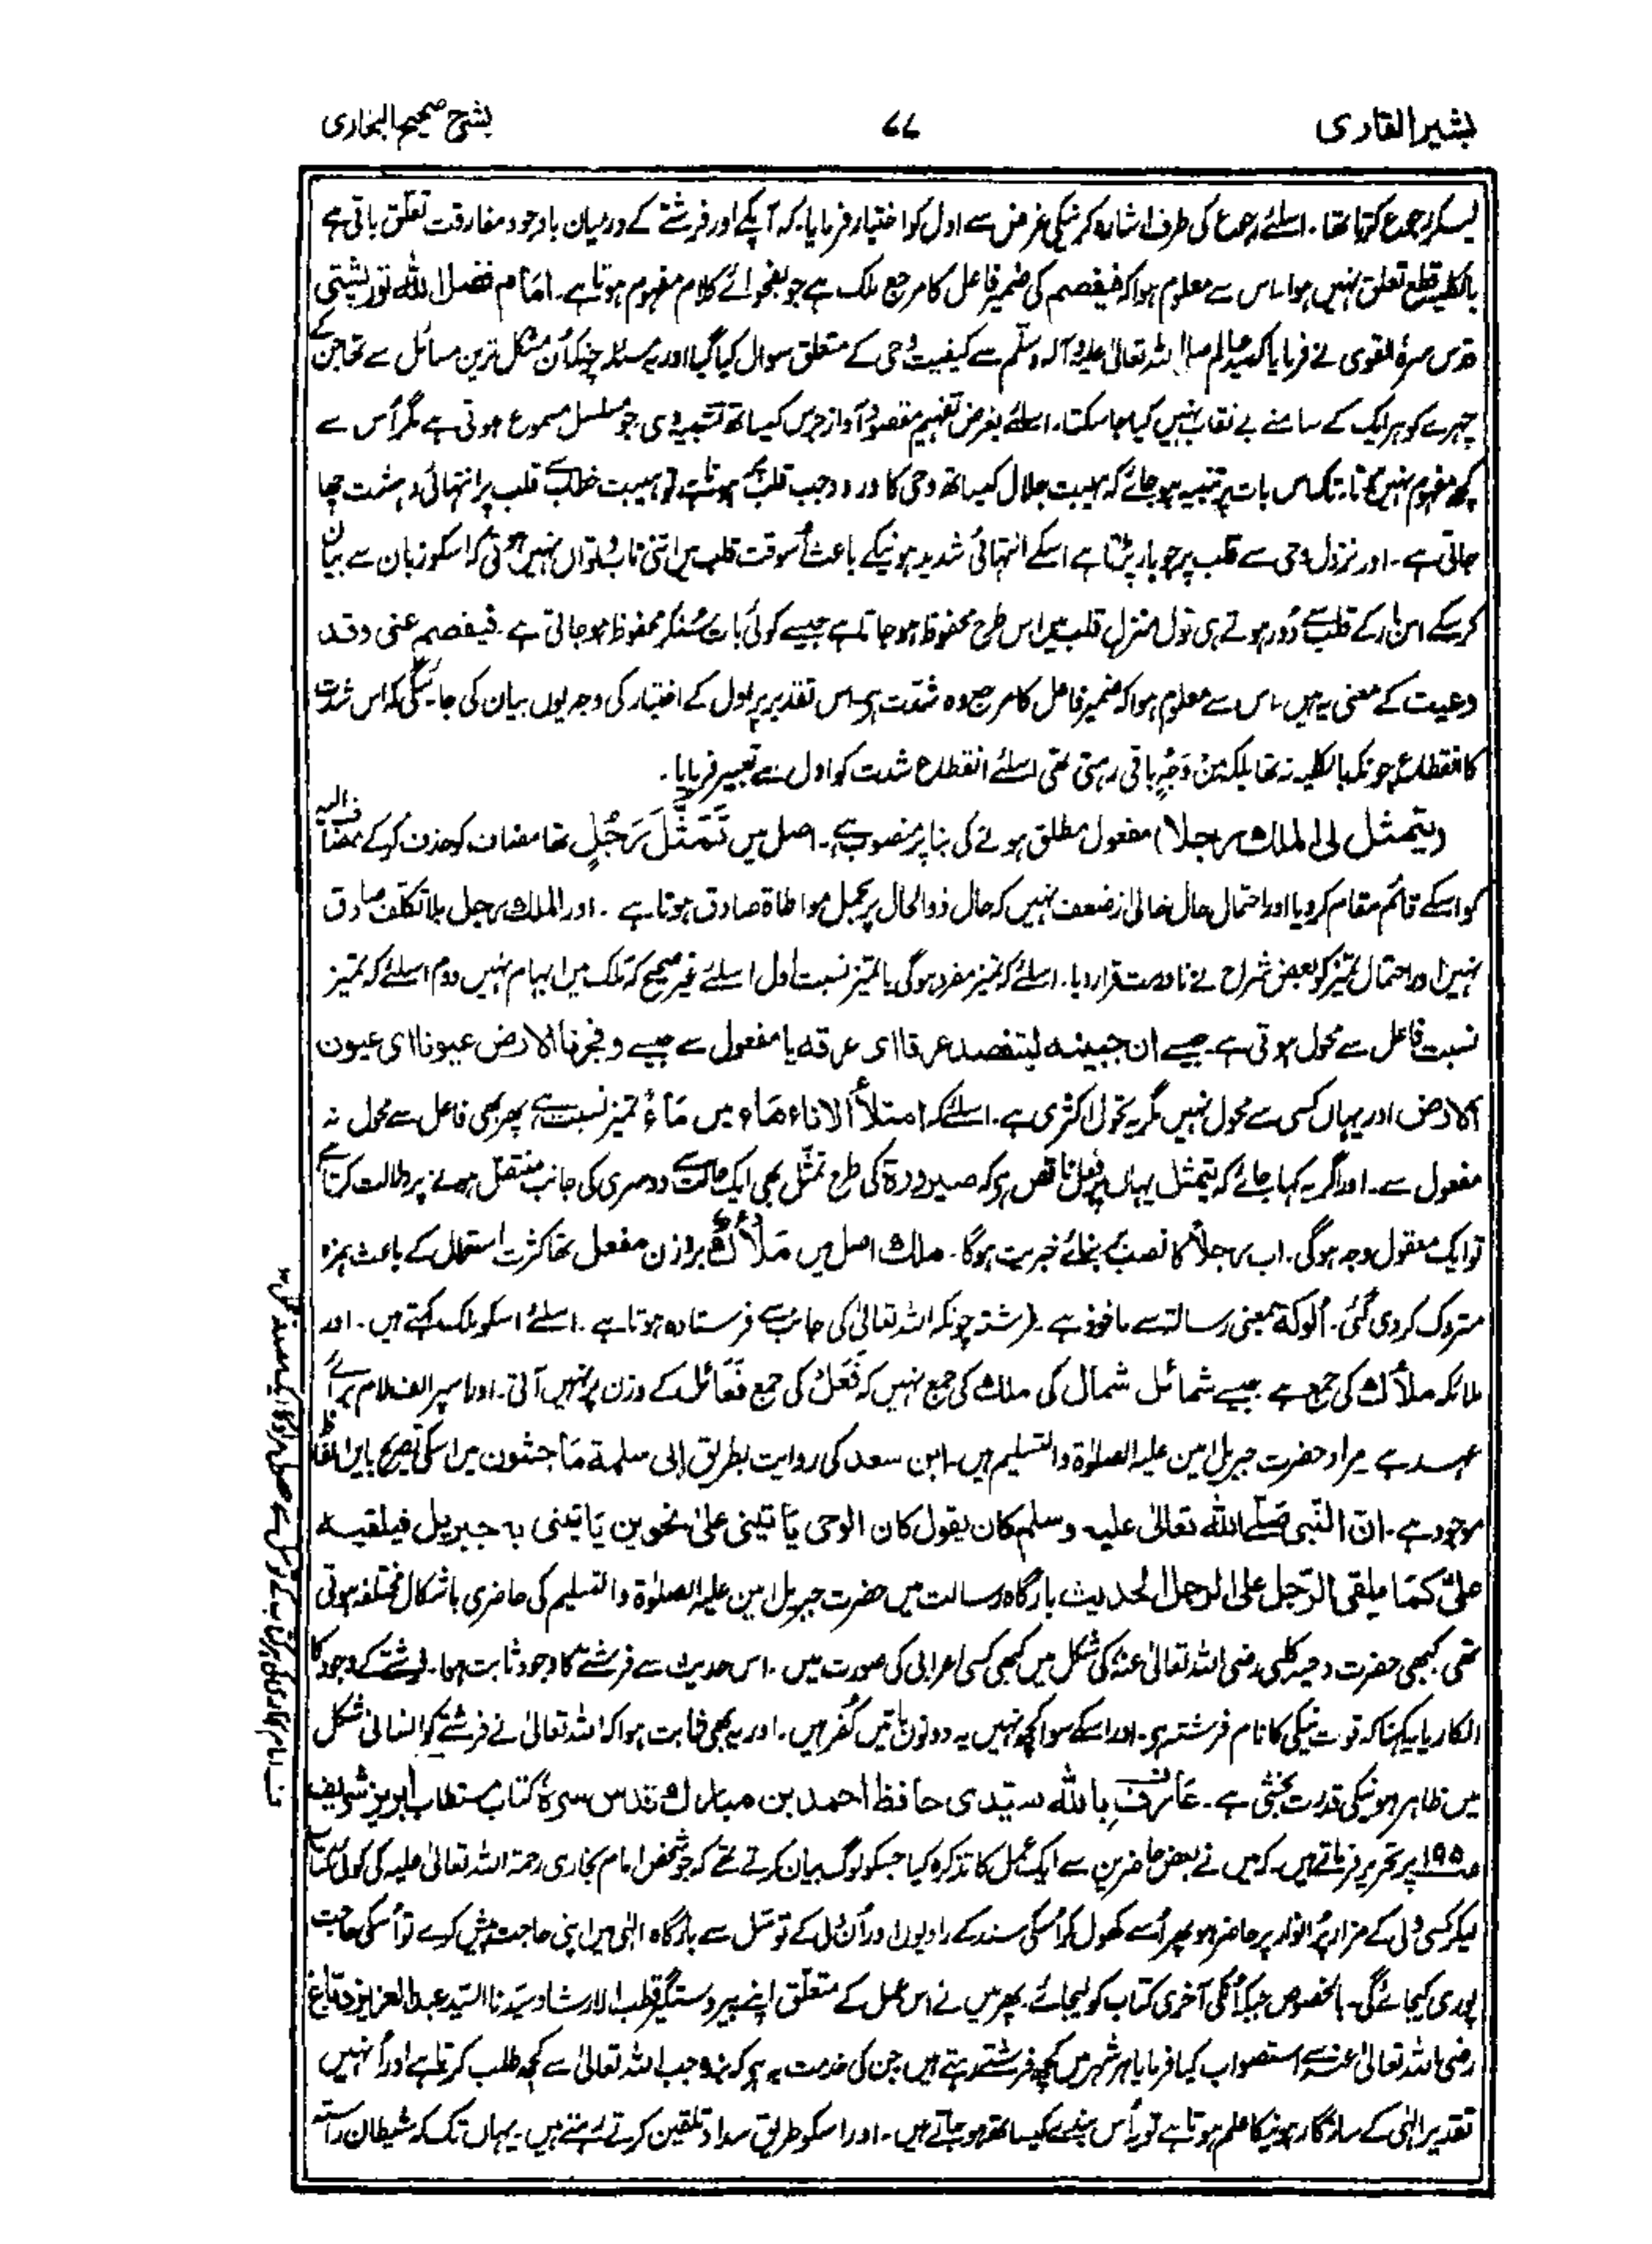 بشیر القاری
۷۷
بشرح صحیح البخاری
لیکر رجوع کرتا تھا۔ اسلئے رجوع کی طرف اشارہ کرنیکی غرض سے اول کو اختیار فرمایا۔ کہ آپکے اور فرشتے کے درمیان باوجود مفارقت تعلق باقی ہے
بالکلیہ قطع تعلق نہیں ہوا۔ اس سے معلوم ہوا کہ فیفصم کی ضمیر فاعل کا مرجع ملک ہے جو بفحوائے کلام مفہوم ہوتا ہے۔ امام فضل اللہ تورپشتی
قدس سرہ القوی نے فرمایا کہ سید عالم صلی اللہ تعالیٰ علیہ وآلہ وسلم سے کیفیت وحی کے متعلق سوال کیا گیا اور یہ مسئلہ چونکہ اُن مشکل ترین مسائل سے تھا جن کے
چہرے کو ہر ایک کے سامنے بے نقاب نہیں کیا جا سکتا۔ اسلئے بغرض تفہیم مقصود آواز جرس کیساتھ تشبیہ دی جو مسلسل مسموع ہوتی ہے مگر اُس سے
کچھ مفہوم نہیں ہوتا۔ تاکہ اس بات پر تنبیہ ہو جائے کہ ہیبت جلال کیساتھ وحی کا ورود جب قلب پر ہوتا ہے تو ہیبت خطاب سے قلب پر انتہائی دہشت چھا
جاتی ہے۔ اور نزول وحی سے قلب پر جو بار پڑتا ہے اسکے انتہائی شدید ہونیکے باعث اُسوقت قلب میں اتنی تاب و تواں نہیں ہوتی کہ اسکو زبان سے بیان
کر سکے اس بار کے قلب سے دُور ہوتے ہی قول منزل قلب میں اس طرح محفوظ ہو جاتا ہے جیسے کوئی بات سُنکر محفوظ ہو جاتی ہے۔ فیفصم عنی وقد
وعیت کے معنی یہ ہیں۔ اس سے معلوم ہوا کہ ضمیر فاعل کا مرجع وہ شدت ہی اس تقدیر پر اول کے اختیار کی وجہ یوں بیان کی جائیگی کہ اس شدت
کا انقطاع چونکہ بالکلیہ نہ تھا بلکہ من وَجْہٍ باقی رہتی تھی اسلئے انقطاع شدت کو اول سے تعبیر فرمایا۔
(یتمثل لی الملک رجلا) مفعول مطلق ہونے کی بنا پر منصوب ہے۔ اصل میں تَمَثُّلَ رَجُلٍ تھا مضاف کو حذف کرکے مضاف الیہ
کو اسکے قائم مقام کر دیا اور احتمال حال خالی از ضعف نہیں کہ حال ذو الحال پر بحمل مواطاۃ صادق ہوتا ہے۔ اور الملک رجل بلا تکلف صادق
نہیں اور احتمال تمیز کو بعض شراح نے نادرست قرار دیا۔ اسلئے کہ تمیز مفرد ہوگی یا تمیز نسبت اول اسلئے غیر صحیح کہ ملک میں ابہام نہیں دوم اسلئے کہ تمیز
نسبت فاعل سے محول ہوتی ہے جیسے ان جبینہ لیتفصد عرقا ای عرقہ یا مفعول سے جیسے وفجرنا الارض عیونا ای عیون
الارض اور یہاں کسی سے محول نہیں مگر یہ تحول اکثری ہے۔ اسلئے کہ امتلأ الاناء ماء میں مَاءً تمیز نسبت ہے پھر بھی فاعل سے محول نہ
مفعول سے۔ اور اگر یہ کہا جائے کہ یتمثل یہاں پر فعل ناقص ہی کہ صیرورۃ کی طرح تمثّل بھی ایک حالت سے دوسری کی جانب منتقل ہونے پر دلالت کرتا ہے
تو ایک معقول وجہ ہوگی۔ اب رجلاً کا نصب بر بنائے خبریت ہوگا۔ ملک اصل میں مَلْأَکٌ بروزن مفعل تھا کثرت استعمال کے باعث ہمزہ
متروک کر دی گئی۔ اُلوکۃ بمعنی رسالت سے ماخوذ ہے۔ فرشتہ چونکہ اللہ تعالیٰ کی جانب سے فرستادہ ہوتا ہے۔ اسلئے اسکو ملک کہتے ہیں۔ اور
ملائکہ ملأک کی جمع ہے جیسے شمائل شمال کی ملک کی جمع نہیں کہ فَعَلٌ کی جمع فَعَائل کے وزن پر نہیں آتی۔ اور اسپر الف لام برائے
عہد ہے مراد حضرت جبریل امین علیہ الصلوٰۃ والتسلیم ہیں۔ ابن سعد کی روایت بطریق ابی سلمۃ ماجشون میں اسکی تصریح بایں الفاظ
موجود ہے۔ انّ النّبی صلّی اللہ تعالیٰ علیہ وسلم کان یقول کان الوحی یاتینی علیٰ نحوین یاتینی بہ جبریل فیلقیہ
علیّ کما یلقی الرّجل علی الرجل الحدیث بارگاہ رسالت میں حضرت جبریل امین علیہ الصلوٰۃ والتسلیم کی حاضری باشکال مختلفہ ہوتی
تھی کبھی حضرت دحیہ کلبی رضی اللہ تعالیٰ عنہ کی شکل میں کبھی کسی اعرابی کی صورت میں۔ اس حدیث سے فرشتے کا وجود ثابت ہوا۔ فرشتے کے وجود کا
انکار یا یہ کہنا کہ قوت نیکی کا نام فرشتہ ہی۔ اور اسکے سوا کچھ نہیں یہ دونوں باتیں کُفر ہیں۔ اور یہ بھی ثابت ہوا کہ اللہ تعالیٰ نے فرشتے کو انسانی شکل
میں ظاہر ہونیکی قدرت بخشی ہے۔ عَارِف بِاللہ سیّدی حافظ احمد بن مبارک قدس سرہ کتاب مستطاب ابریز شریف
ص۱۹۵ پر تحریر فرماتے ہیں۔ کہ میں نے بعض حاضرین سے ایک عمل کا تذکرہ کیا جسکو لوگ بیان کرتے تھے کہ جو شخص امام بخاری رحمۃ اللہ تعالیٰ علیہ کی کوئی کتاب
لیکر کسی ولی کے مزار پُر انوار پر حاضر ہو پھر اُسے کھول کر اُسکی سند کے راویوں اور اُن ولی کے توسّل سے بارگاہ الٰہی میں اپنی حاجت پیش کرے تو اُسکی حاجت
پوری کیجائے گی۔ بالخصوص جبکہ اُنکی آخری کتاب کو لیجائے۔ پھر میں نے اس عمل کے متعلّق اپنے پیر دستگیر قطب الارشاد سیّدنا السّید عبد العزیز دبّاغ
رضی اللہ تعالیٰ عنہ سے استصواب کیا فرمایا ہر شہر میں کچھ فرشتے رہتے ہیں جن کی خدمت یہ ہی کہ بندہ جب اللہ تعالیٰ سے کچھ طلب کرتا ہے اور اُنہیں
تقدیر الٰہی کے سازگار ہونیکا علم ہوتا ہے تو یہ اُس بندے کیساتھ ہو جاتے ہیں۔ اور اسکو طریق سداد تلقین کرتے رہتے ہیں۔ یہاں تک کہ شیطان راستہ